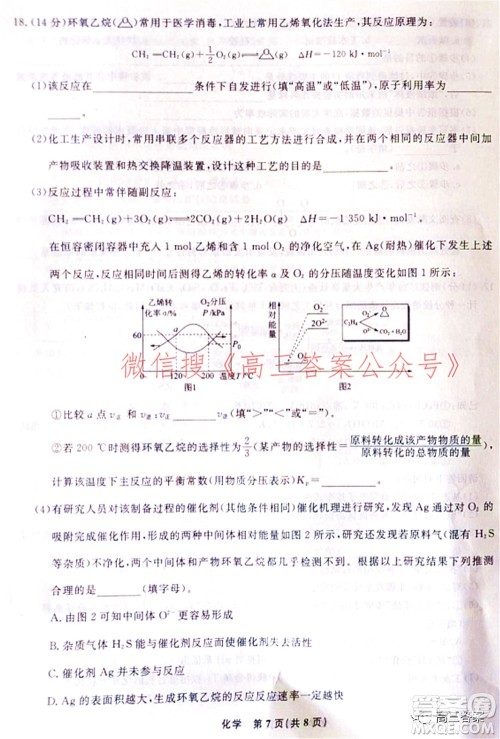 18.(14分)环氧乙烷(△)常用于医学消毒,工业上常用乙烯氧化法生产,其反应原理为:
CH₂=CH₂(g)+1/2O₂(g)⇌(g) ΔH=-120 kJ·mol⁻¹
(1)该反应在________条件下自发进行(填“高温”或“低温”),原子利用率为
________。
(2)化工生产设计时,常用串联多个反应器的工艺方法进行合成,并在两个相同的反应器中间加
产物吸收装置和热交换降温装置,设计这种工艺的目的是________。
(3)反应过程中常伴随副反应:
CH₂=CH₂(g)+3O₂(g)⇌2CO₂(g)+2H₂O(g) ΔH=-1 350 kJ·mol⁻¹
在恒容密闭容器中充入1 mol乙烯和含1 mol O₂的净化空气,在Ag(耐热)催化下发生上述
两个反应,反应相同时间后测得乙烯的转化率α及O₂的分压随温度变化如图1所示:
乙烯转
化率α/%
O₂分压
P/kPa
60
a
P₀
0 120 200 温度T/℃
图1
相对能量
O₂
2O²⁻
O₂⁻
C₂H₄
CO₂+H₂O
图2
微信搜《高三答案公众号》
①比较a点v正和v逆:v正________v逆(填“>”“<”或“=”)。
②若200 ℃时测得环氧乙烷的选择性为2/3(某产物的选择性=原料转化成该产物物质的量/原料转化的总物质的量),
计算该温度下主反应的平衡常数(用物质分压表示)Kp=________。
(4)有研究人员对该制备过程的催化剂(其他条件相同)催化机理进行研究,发现通过Ag对O₂的
吸附完成催化作用,形成的两种中间体相对能量如图2所示,研究还发现若原料气(混有H₂S
等杂质)不及时净化,两个中间体和产物环氧乙烷都几乎检测不到。根据以上研究结果下列推测
合理的是________(填字母)。
A.由图2可知中间体O²⁻更容易形成
B.杂质气体H₂S能与催化剂反应而使催化剂失去活性
C.催化剂Ag并未参与反应
D.Ag的表面积越大,生成环氧乙烷的反应反应速率一定越快
化学 第7页(共8页)
高三答案